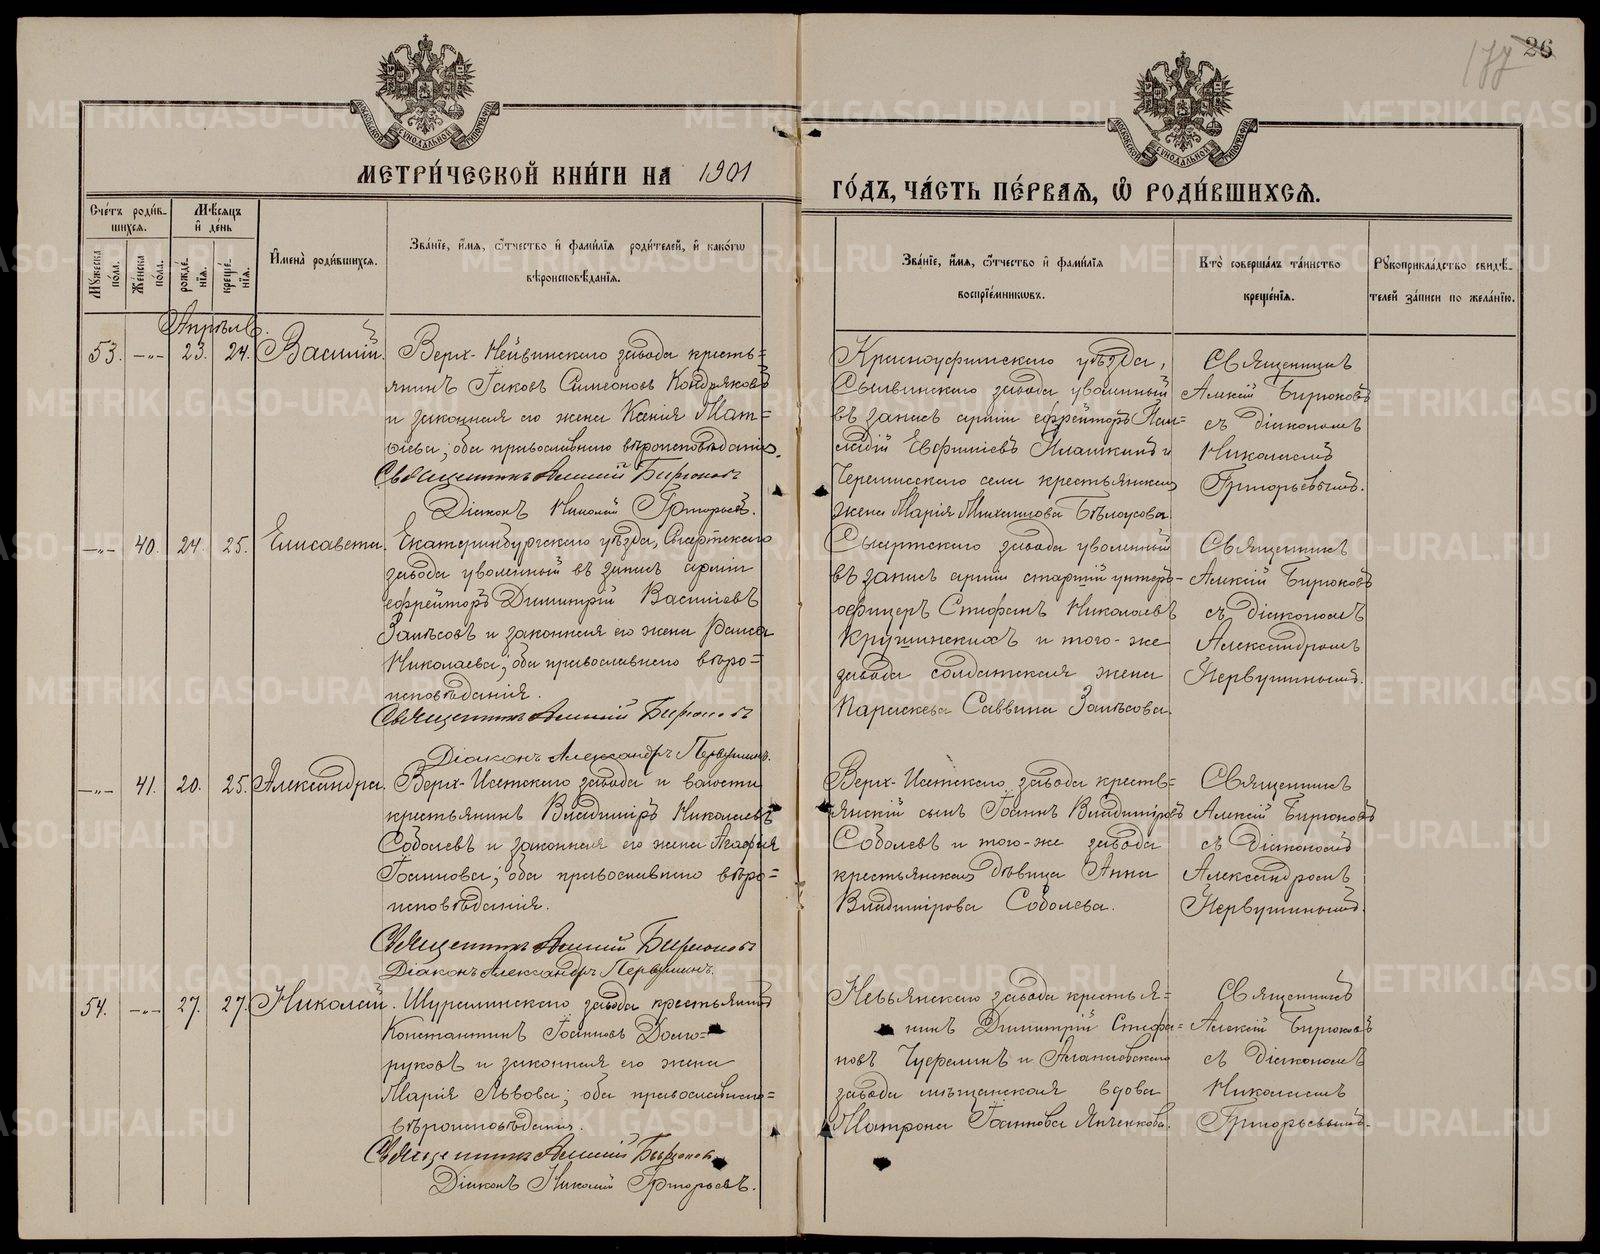 177 26
МЕТРИ́ЧЕСКОЙ КНИ́ГИ НА 1901
ГО́ДЪ, ЧА́СТЬ ПЕ́РВАЯ, Ѽ РОДИ́ВШИХСЯ.
МОСКОВСКОЙ СѴНОДАЛЬНОЙ ТИПОГРАФІИ
МОСКОВСКОЙ СѴНОДАЛЬНОЙ ТИПОГРАФІИ
Сче́тъ роди́в-
шихся.
Мѣ́сяцъ
и҆ де́нь
Мꙋ́жеска по́ла.
Же́нска по́ла.
рожде́-
нїѧ.
креще́-
нїѧ.
И҆мена̀ роди́вшихся.
Зва́нїе, и҆́мѧ, ѻ҆́тчество и҆ фами́лїѧ роди́телей, и҆ како́гѡ
вѣроисповѣ́данїѧ.
Зва́нїе, и҆́мѧ, ѻ҆́тчество и҆ фами́лїѧ
воспрїе́мникѡвъ.
Кто̀ соверша́лъ та́инство
креще́нїѧ.
Рꙋкоприкла́дство свидѣ́-
телей за́писи по жела́нїю.
Апрѣль.
53. —„— 23. 24. Василій.
Верх-Нейвинскаго завода кресть=
янинъ Іаковъ Симеоновъ Кондряковъ
и законная его жена Ксенія Мат=
ѳіева; оба православнаго вѣроисповѣданія.
Священникъ Алексій Бирюковъ
Діаконъ Николай Григорьевъ.
Красноуфимскаго уѣзда,
Сылвинскаго завода уволенный
въ запасъ арміи ефрейторъ
Евфиміевъ и
Черемисскаго села крестьянская
жена Марія Михаилова Бѣлоусова.
Священникъ
Алексій Бирюковъ
съ діакономъ
Николаемъ
Григорьевымъ.
—„— 40. 24. 25. Елисавета.
Екатеринбургскаго уѣзда, Сысертскаго
завода уволенный въ запасъ арміи
ефрейторъ Димитрій Васильевъ
Залѣсовъ и законная его жена Раиса
Николаева; оба православнаго вѣро=
исповѣданія.
Священникъ Алексій Бирюковъ
Діаконъ Александръ Первушинъ.
Сысертскаго завода уволенный
въ запасъ арміи старшій унтеръ-
офицеръ Стефанъ Николаевъ
Крушинскихъ и того-же
завода солдатская жена
Параскева Саввина Залѣсова.
Священникъ
Алексій Бирюковъ
съ діакономъ
Александромъ
Первушинымъ.
—„— 41. 20. 25. Александра.
Верх-Исетскаго завода и волости
крестьянинъ Владиміръ Николаевъ
Соболевъ и законная его жена Агафія
Іоаннова; оба православнаго вѣро=
исповѣданія.
Священникъ Алексій Бирюковъ
Діаконъ Александръ Первушинъ.
Верх-Исетскаго завода кресть=
янскій сынъ Іоаннъ Владиміровъ
Соболевъ и того-же завода
крестьянская дѣвица Анна
Владимірова Соболева.
Священникъ
Алексій Бирюковъ
съ діакономъ
Александромъ
Первушинымъ.
54. —„— 27. 27. Николай.
Шуралинскаго завода крестьянинъ
Константинъ Іоанновъ Долго=
руковъ и законная его жена
Марія Львова; оба православнаго=
вѣроисповѣданія.
Священникъ Алексій Бирюковъ
Діаконъ Николай Григорьевъ.
Невьянскаго завода крестья=
нинъ Димитрій Стефа=
новъ и Алапаевскаго
завода мѣщанская вдова
Матрона Іоаннова Янченкова.
Священникъ
Алексій Бирюковъ
съ діакономъ
Николаемъ
Григорьевымъ.
METRIKI.GASO-URAL.RU